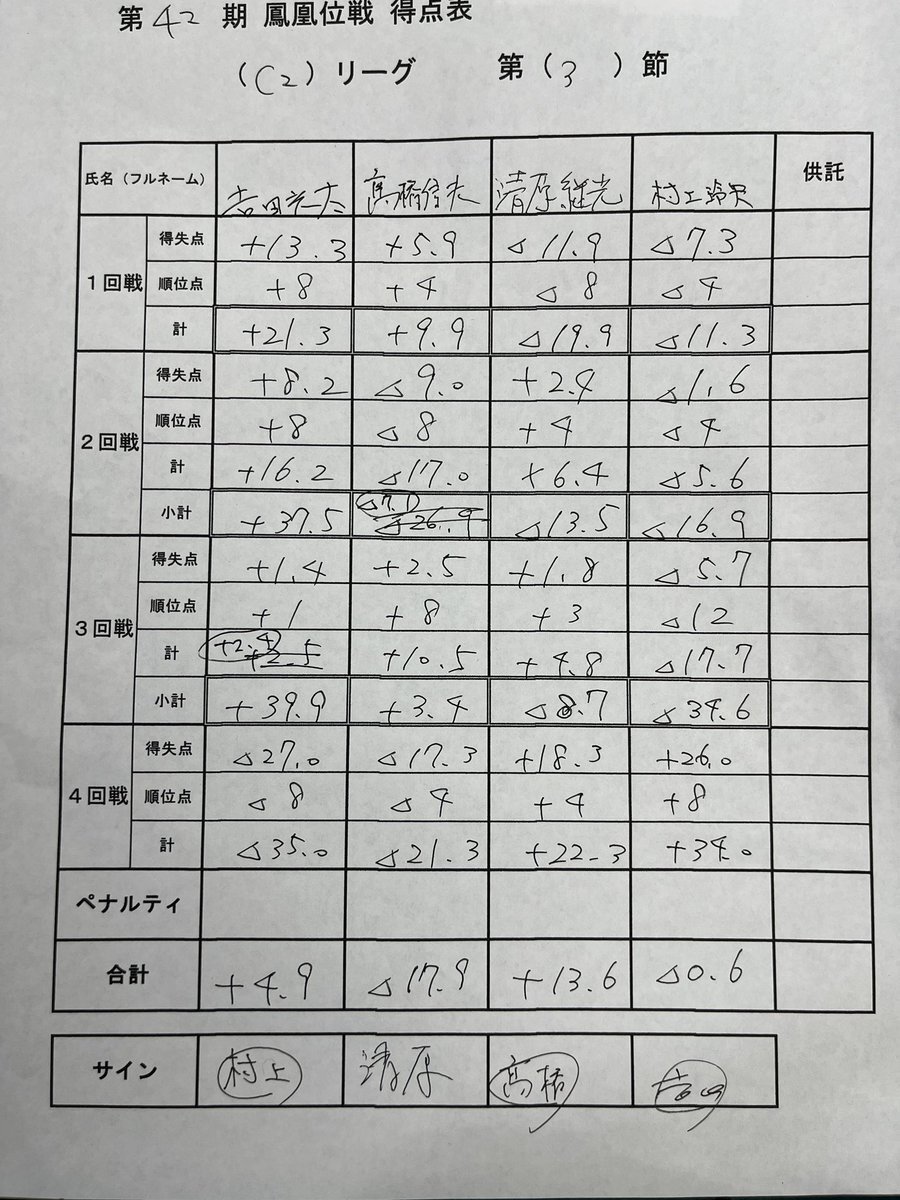 第 42 期 鳳凰位戦 得点表
（C2）リーグ 第（3）節
氏名（フルネーム） 吉田圭太 髙橋信夫 清原継光 村上 供託
1回戦 得失点 +13.3 +5.9 △11.9 △7.3
順位点 +8 +4 △8 △4
計 +21.3 +9.9 △19.9 △11.3
2回戦 得失点 +8.2 △9.0 +2.4 △1.6
順位点 +8 △8 +4 △4
計 +16.2 △17.0 +6.4 △5.6
小計 +37.5 △7.1 △26.9 △13.5 △16.9
3回戦 得失点 +1.4 +2.5 +1.8 △5.7
順位点 +1 +8 +3 △12
計 +2.4 +2.5 +10.5 +4.8 △17.7
小計 +39.9 +3.4 △8.7 △34.6
4回戦 得失点 △27.0 △17.3 +18.3 +26.0
順位点 △8 △4 +4 +8
計 △35.0 △21.3 +22.3 +34.0
ペナルティ
合計 +4.9 △17.9 +13.6 △0.6
サイン 村上 清原 髙橋 吉田